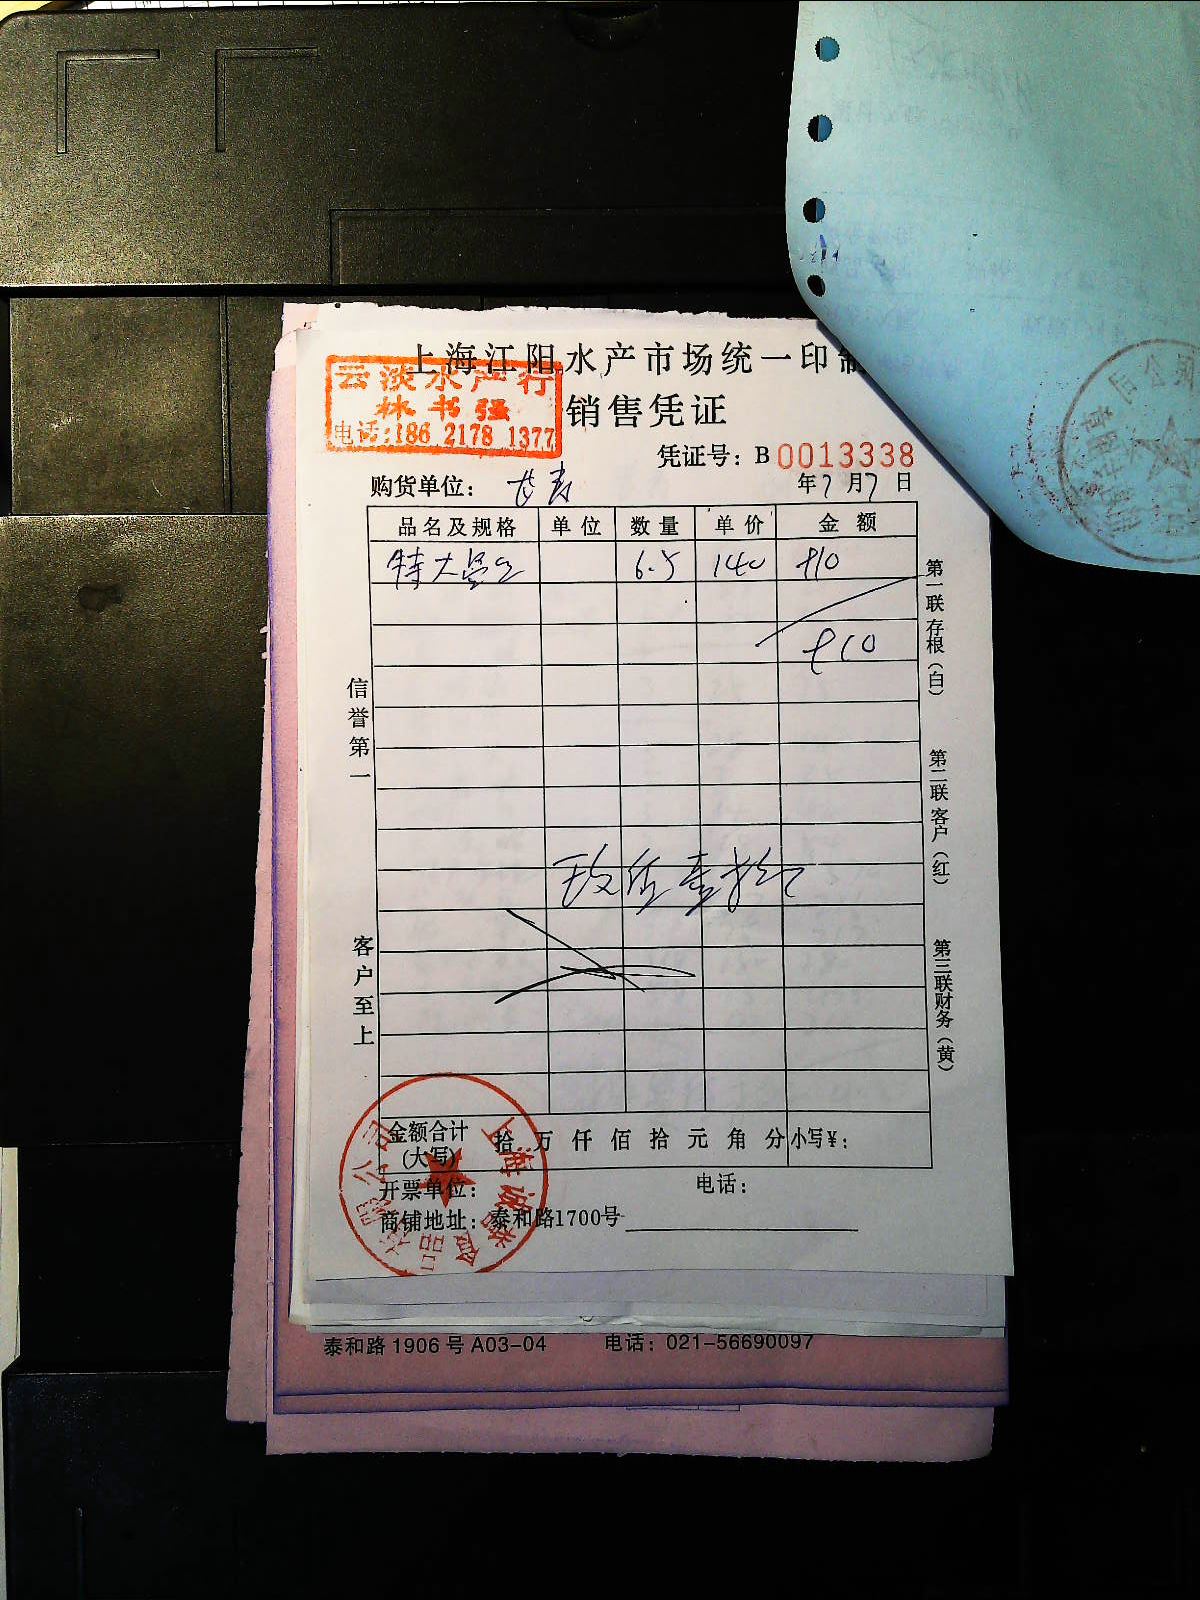 上海江阳水产市场统一印制
云淡水产行
林书强
电话:186 2178 1377
销售凭证
凭证号：B 0013338
购货单位：
年7月7日
品名及规格 单位 数量 单价 金额
特大 6.5 140 910
910
信誉第一
客户至上
第一联存根（白）
第二联客户（红）
第三联财务（黄）
玖佰壹拾元
金额合计(大写) 拾 万 仟 佰 拾 元 角 分 小写¥：
开票单位： 电话：
商铺地址：泰和路1700号
泰和路1906号A03-04 电话：021-56690097